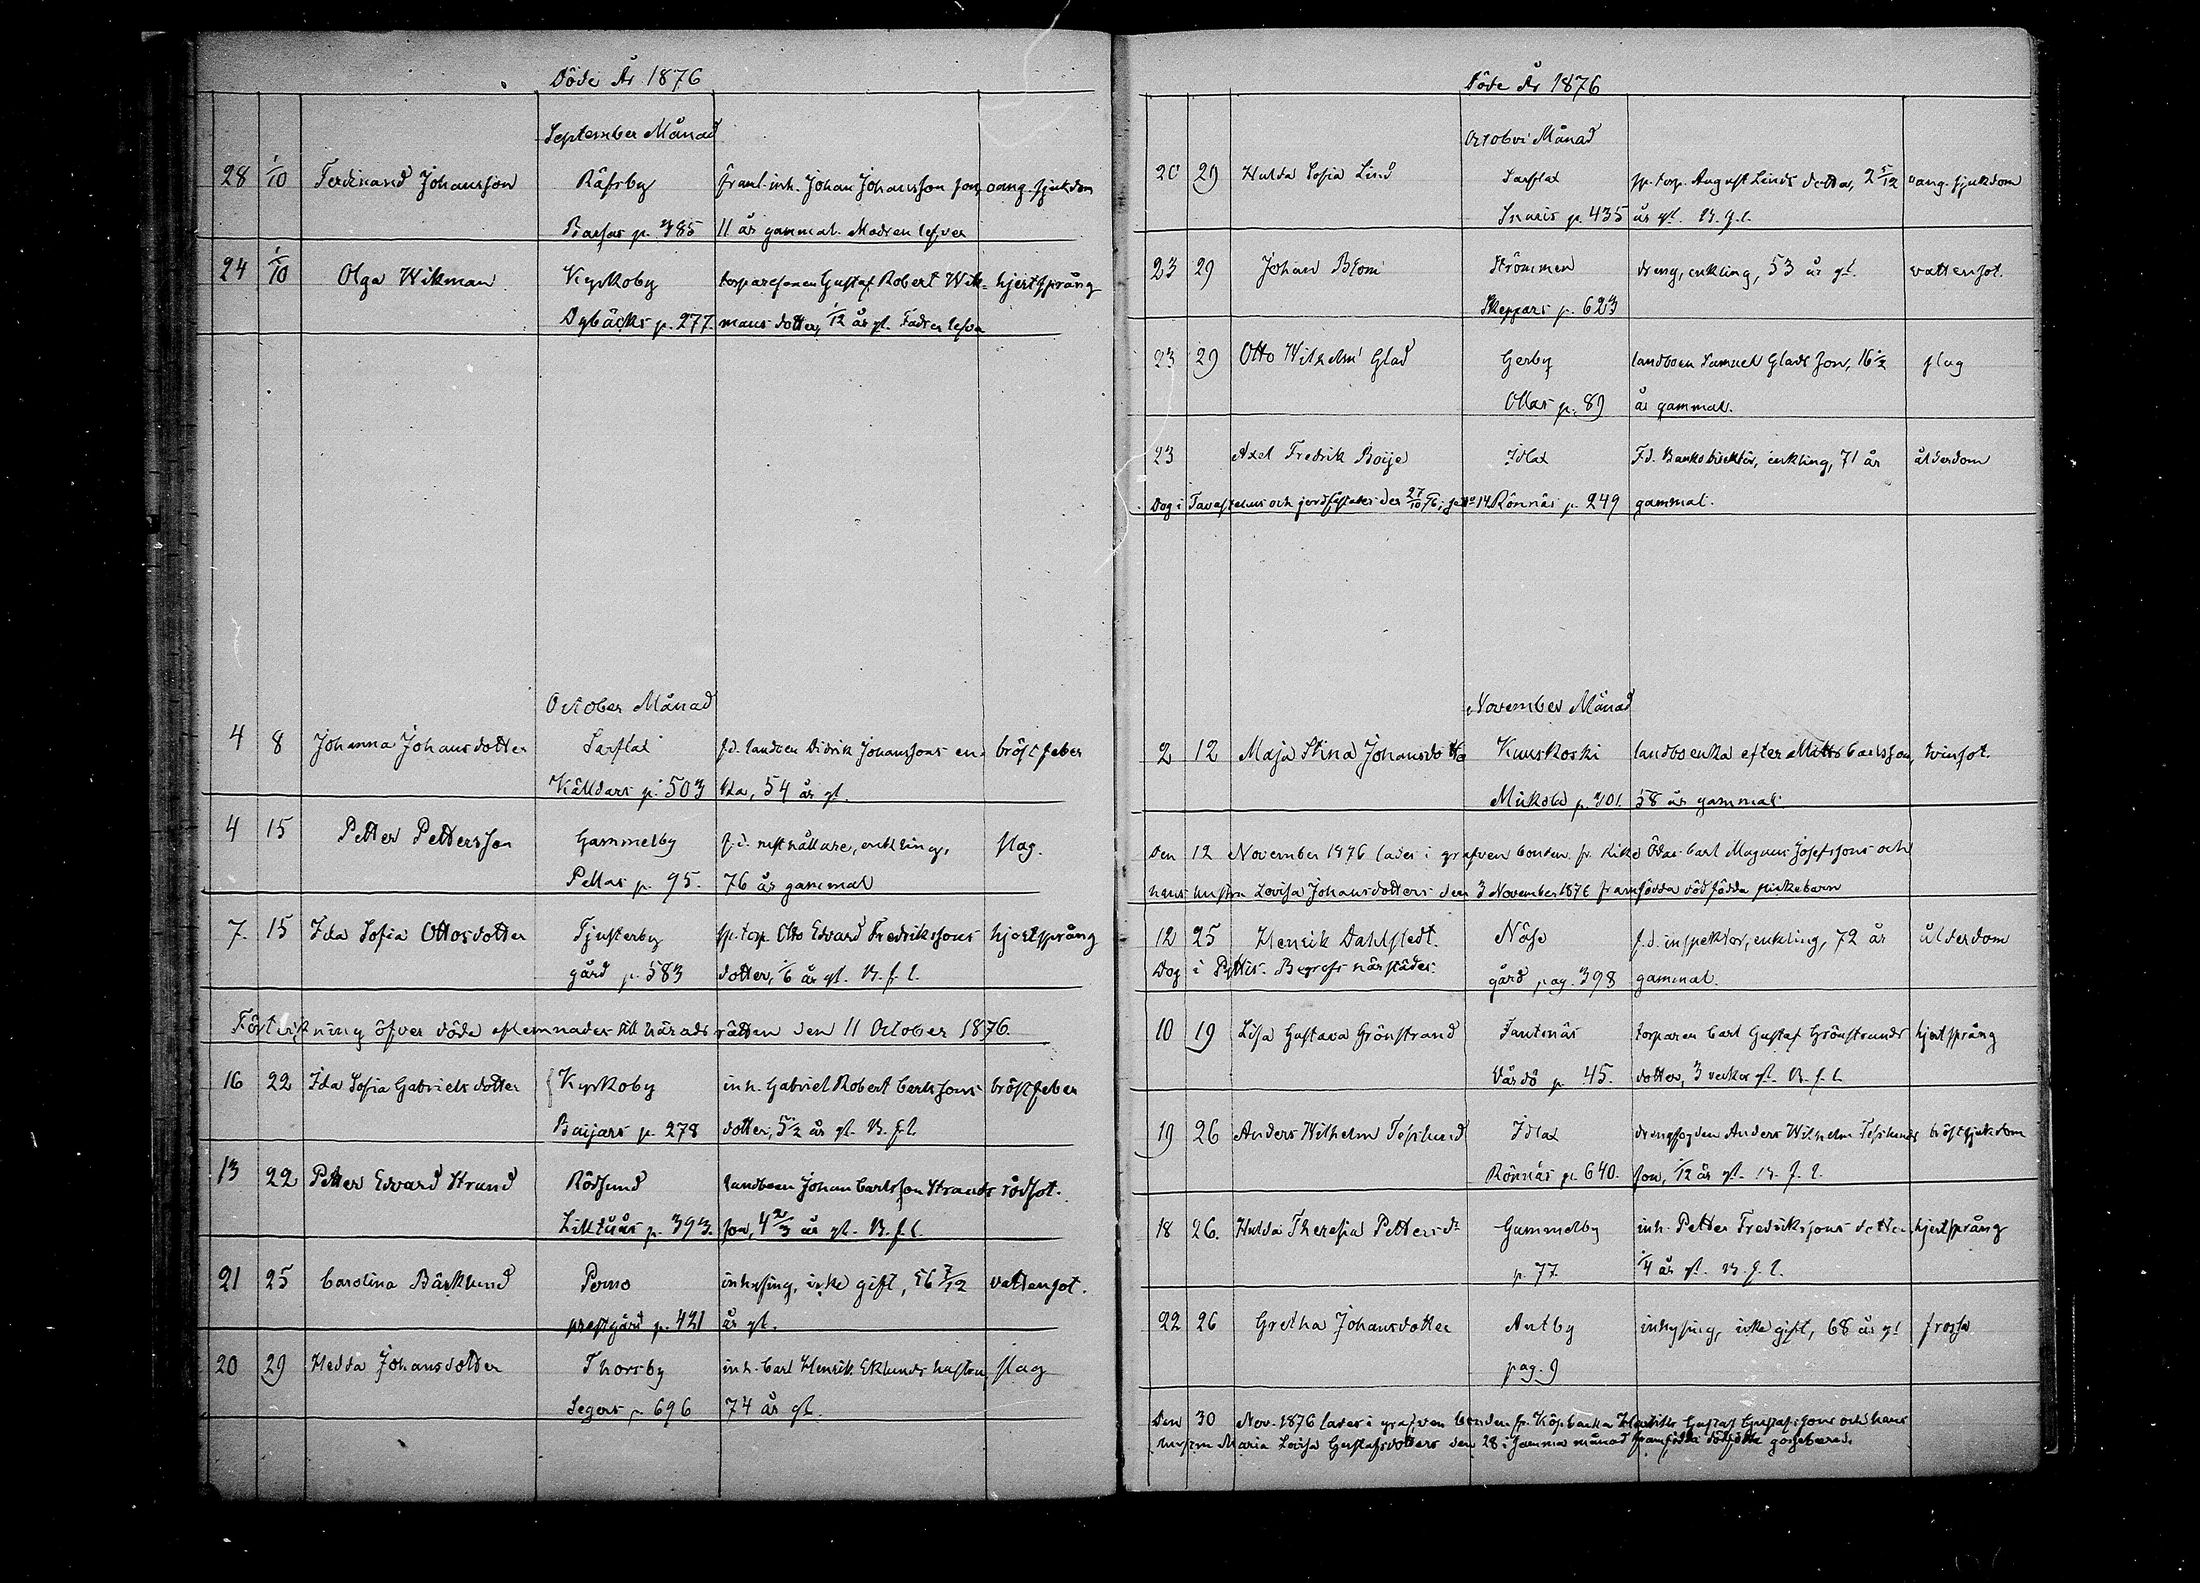 Döde År 1876
September Månad
28 1/10 Ferdinand Johansson Räfsby inh. Johan Johansson son, oang. sjukdom
Basas p. 385 11 år gammal. Modren lefver
24 1/10 Olga Wikman Kyrkoby torparesonen Gustaf Robert Wik- hjertsprång
Dybäcks p. 277. mans dotter, 1/12 år gl. Fadren lefver
October Månad
4 8 Johanna Johansdotter Sarflax f.d. landboen Didrik Johanssons en- bröstfeber
Källdars p. 503 ka, 54 år gl.
4 15 Petter Pettersson Gammelby f.d. rusthållare, enkling, slag.
Pellas p. 95. 76 år gammal
7. 15 Ida Sofia Ottosdotter Tjusterby sp. torp. Otto Edvard Fredrikssons hjertsprång
gård p. 583 dotter, 1/6 år gl. B. f. l.
Förteckning öfver döde aflemnades till häradsrätten den 11 October 1876.
16 22 Ida Sofia Gabrielsdotter Kyrkoby inh. Gabriel Robert Carlssons bröstfeber
Baijars p. 278 dotter, 5 1/2 år gl. B. f. l.
13 22 Petter Edvard Strand Rödsund landboen Johan Carlsson Strands rödsot.
Lilltuas p. 393. son, 4 2/3 år gl. B. f. l.
21 25 Carolina Bäcklund Porno inhysing, icke gift, 56 7/12 vattensot.
prestgård p. 421 år gl.
20 29 Hedda Johansdotter Thorsby inh. Carl Henrik Eklunds hustru, slag
Segers p. 696 74 år gl.
Döde År 1876
October Månad
20 29 Hulda Sofia Lind Sarflax sp. torp. August Linds dotter, 2 5/12 oang. sjukdom
Snaris p. 435 år gl. B. f. l.
23 29 Johan Blom Strömmen dreng, enkling, 53 år gl. vattensot.
Skeppars p. 623
23 29 Otto Wilhelm Glad Gerby landboen Samuel Glads son, 16 1/2 slag
Ollas p. 89 år gammal.
23 Axel Fredrik Boije Idlax F.d. Banko direktör, enkling, 71 år ålderdom
Dog i Tavastehus och jordfästades der 27/10 76, Rönnäs p. 249 gammal.
November Månad
2 12 Maja Stina Johansdotter Kuuskoski landboenka efter Matts Carlsson, tvinsot.
Mickola p. 301. 58 år gammal
Den 12 November 1876 lades i grafven bonden fr. Carl Magnus Josefssons och
hans hustru Lovisa Johansdotters den 3 November 1876 framfödda dödfödda flickebarn
12 25 Henrik Dahlstedt. Näse f.d. inspektor, enkling, 72 år ålderdom
Dog i Pyttis. Begrofs härstädes. gård pag. 398 gammal.
10 19 Lisa Gustava Grönstrand Tantnäs torparen Carl Gustaf Grönstrands hjertsprång
Vårdö p. 45. dotter, 3 veckor gl. B. f. l.
19 26 Anders Wilhelm Idlax drengfogden Anders Wilhelm bröstsjukdom
Rönnäs p. 640. son, 1/12 år gl. B. f. l.
18 26. Hulda Theresia Pettersdr Gammelby inh. Petter Fredrikssons dotter hjertsprång
p. 77. 1/4 år gl. B. f. l.
22 26 Gretha Johansdotter Antby inhysing, icke gift, 68 år gl frossa
pag. 9
Den 30 Nov. 1876 lades i grafven bonden fr. Köpbacka Gustaf Gustafssons och hans
hustru Maria Lovisa Gustafsdotters den 28 i samma månad framfödda dödfödda gossebarn.